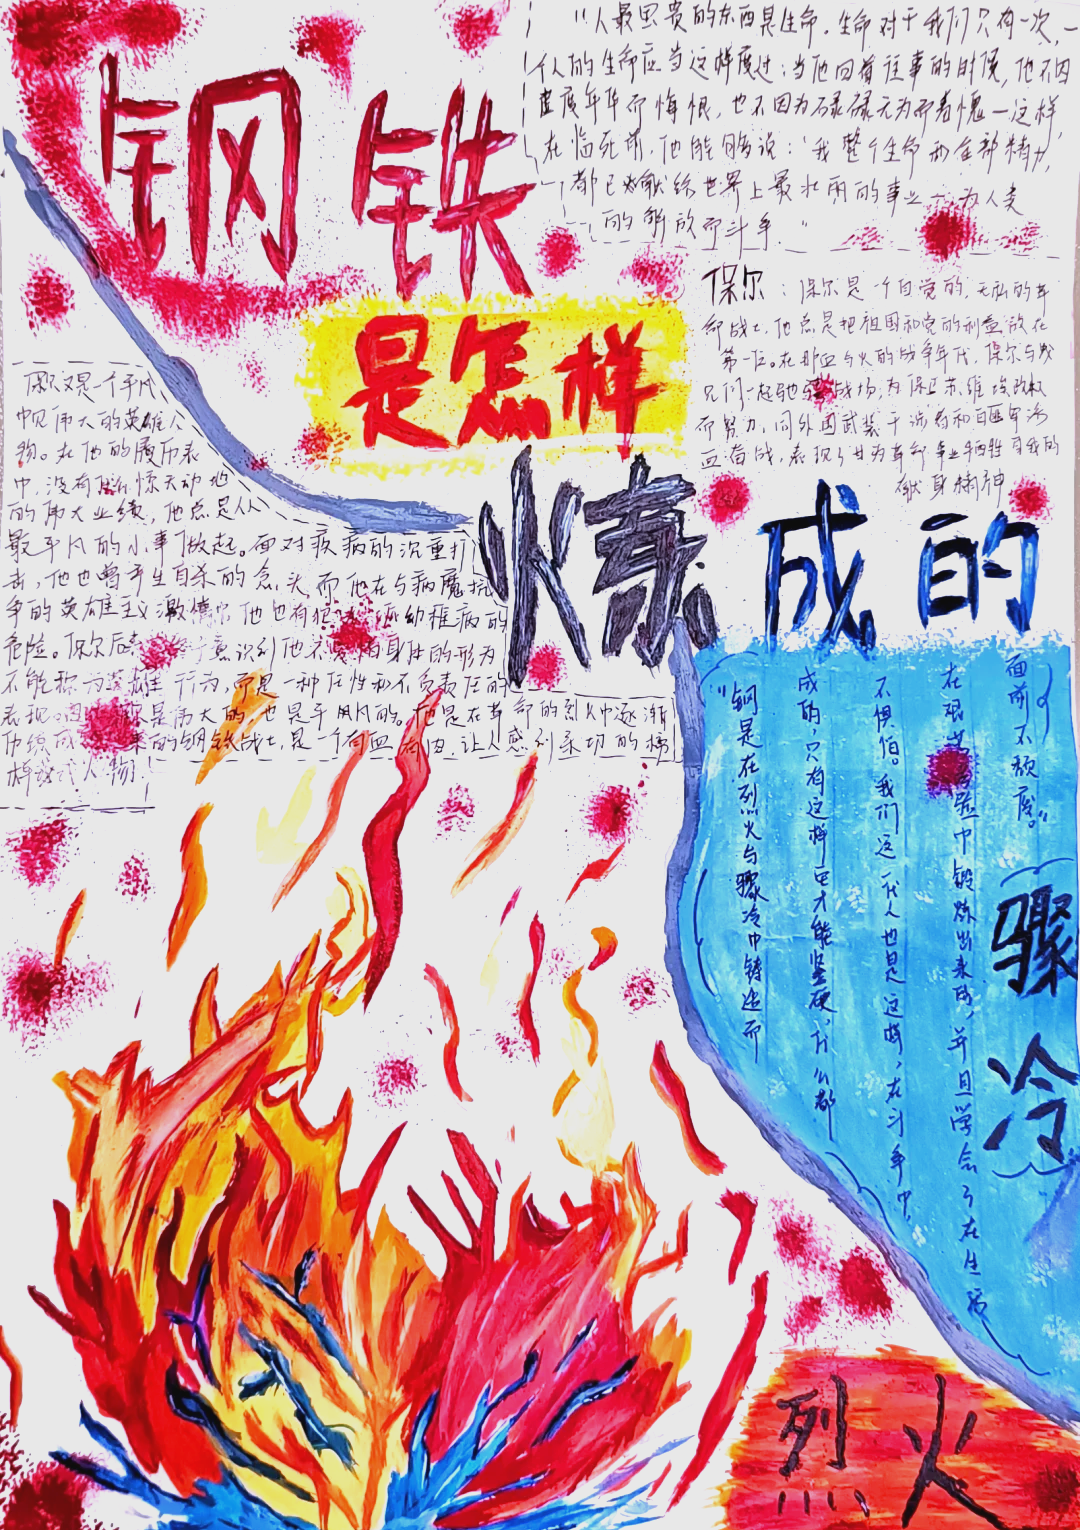 钢铁
是怎样
炼成的
“人最宝贵的东西是生命。生命对于我们只有一次,一
个人的生命应当这样度过:当他回首往事的时候,他不因
虚度年华而悔恨,也不因为碌碌无为而羞愧—这样,
在临死前,他能够说:“我整个生命和全部精力,
都已献给世界上最壮丽的事业——为人类
的解放而斗争。”
保尔:保尔是一个自觉的,无私的革
命战士,他总是把祖国和党的利益放在
第一位。在那血与火的战争年代,保尔与
兄们一起驰骋战场,为保卫苏维埃政权
而努力,同外国武装干涉者和白匪军浴
血奋战,表现了甘为革命事业牺牲自我的
献身精神
保尔又是一个平凡
中见伟大的英雄人
物。在他的履历表
中,没有惊天动地
的伟大业绩,他总是从
最平凡的小事做起。面对疾病的沉重打
击,他也曾产生自杀的念头,而他在与病魔抗
争的英雄主义激情中他也有犯幼稚病的
危险。保尔后意识到他不爱惜身体的形为
不能称为英雄行为,而是一种任性和不负责任的
表现。是伟大的。也是平凡的。他是在革命的烈火中逐渐
的钢铁战士,是一个有血有肉,让人感到亲切的榜
样式人物!
骤冷
“钢是在烈火与骤冷中铸造而
成的,只有这样它才能坚硬,什么都
不惧怕。我们这一代人也是这样,在斗争中,
在艰苦考验中锻炼出来的,并且学会了在生活
面前不颓废。”
烈火